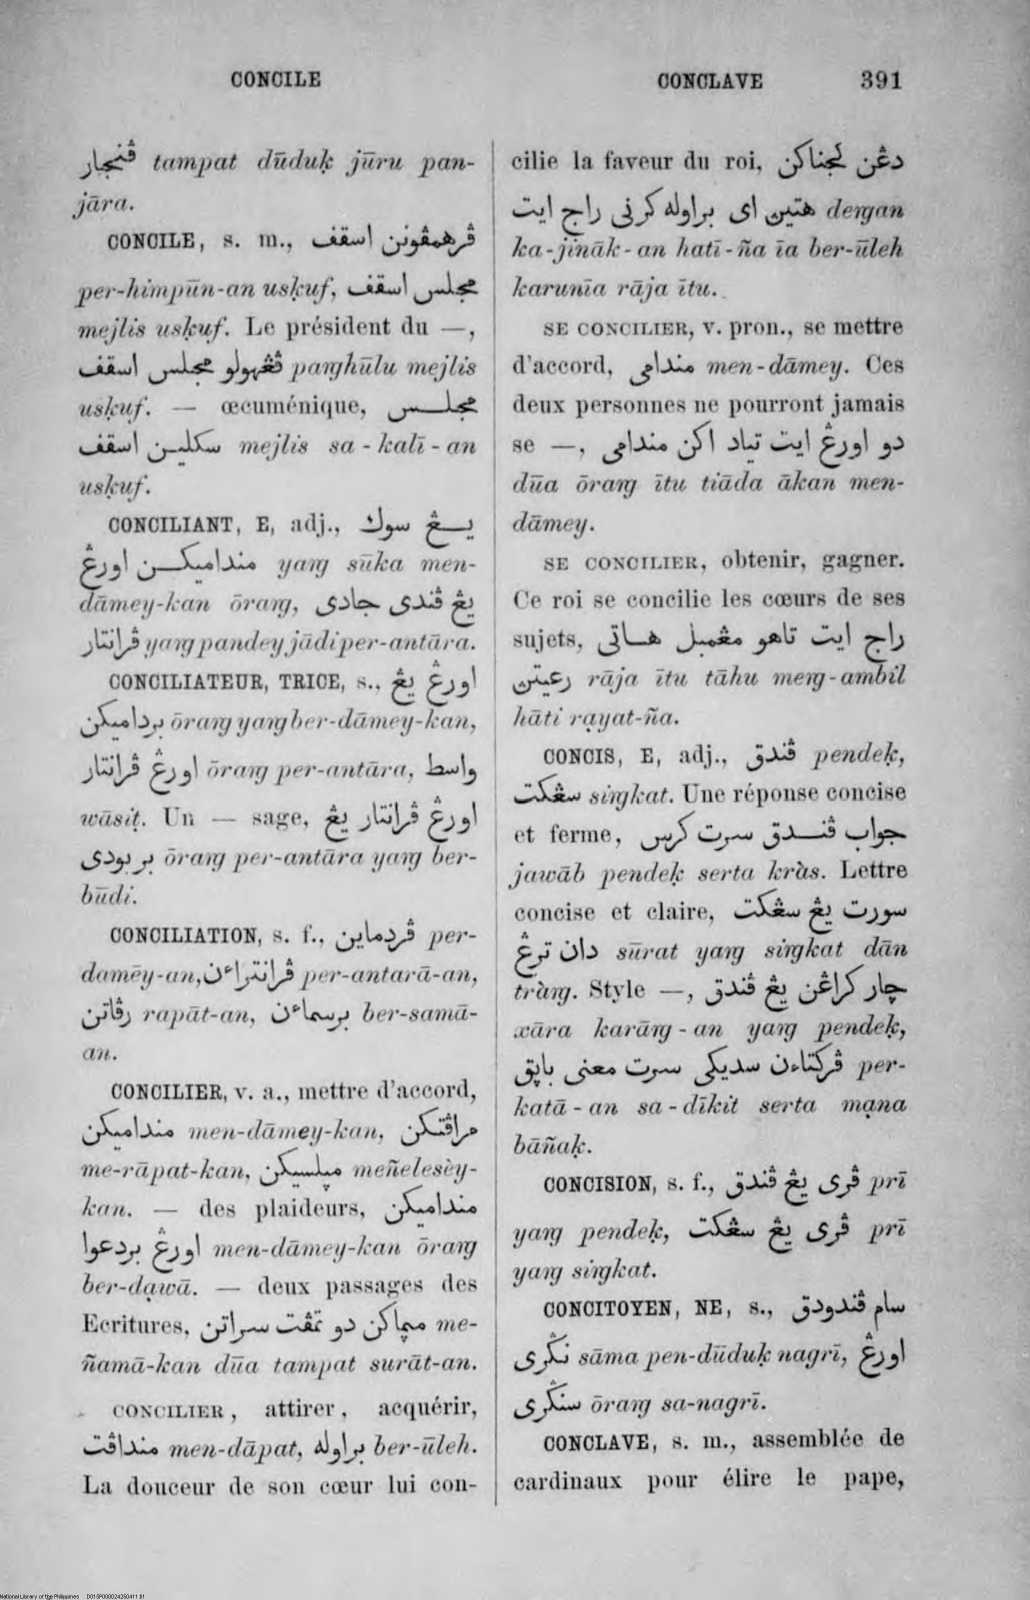 CONCILE
CONCLAVE 391
ڤنجار tampat dūduḳ jūru pan-
jāra.
CONCILE, s. m., ڤرهمڤونن اسقف
per-himpūn-an usḳuf, مجلس اسقف
mejlis usḳuf. Le président du —,
ڤڠهولو مجلس اسقف paŋghūlu mejlis
usḳuf. — œcuménique, مجلس
سكلين اسقف mejlis sa-kalī-an
usḳuf.
CONCILIANT, E, adj., يڠ سوك
منداميكن اورڠ yaŋ sūka men-
dāmey-kan ōraŋ, يڠ ڤندى جادى
ڤرانتار yaŋ pandey jādi per-antāra.
CONCILIATEUR, TRICE, s., اورڠ يڠ
برداميكن ōraŋ yaŋ ber-dāmey-kan,
اورڠ ڤرانتار ōraŋ per-antāra, واسط
wāsiṭ. Un — sage, اورڠ ڤرانتار يڠ
بربودى ōraŋ per-antāra yaŋ ber-
būdi.
CONCILIATION, s. f., ڤردماين per-
damēy-an, ڤرانتراءن per-antarā-an,
رڤاتن rapāt-an, برسماءن ber-samā-
an.
CONCILIER, v. a., mettre d'accord,
منداميكن men-dāmey-kan, مراڤتكن
me-rāpat-kan, مڽلسيكن meñelesèy-
kan. — des plaideurs, منداميكن
اورڠ بردعوا men-dāmey-kan ōraŋ
ber-dạwā. — deux passages des
Ecritures, مڽماكن دو تمڤت سراتن me-
ñamā-kan dūa tampat surāt-an.
CONCILIER, attirer, acquérir,
منداڤت men-dāpat, براوله ber-ūleh.
La douceur de son cœur lui con-
cilie la faveur du roi, دڠن كجناكن
هتين اى براوله كرنى راج ايت deŋgan
ka-jināk-an hatī-ña īa ber-ūleh
karunīa rāja ītu.
SE CONCILIER, v. pron., se mettre
d'accord, مندامى men-dāmey. Ces
deux personnes ne pourront jamais
se —, دو اورڠ ايت تياد اكن مندامى
dūa ōraŋ ītu tiāda ākan men-
dāmey.
SE CONCILIER, obtenir, gagner.
Ce roi se concilie les cœurs de ses
sujets, راج ايت تاهو مڠمبل هاتى
رعيتن rāja ītu tāhu meŋ-ambil
hāti rạyat-ña.
CONCIS, E, adj., ڤندق pendeḳ,
سڠكت siŋkat. Une réponse concise
et ferme, جواب ڤندق سرت كرس
jawāb pendeḳ serta kràs. Lettre
concise et claire, سورت يڠ سڠكت
دان ترڠ sūrat yaŋ siŋkat dān
tràŋ. Style —, چار كراڠن يڠ ڤندق
xāra karāŋ-an yaŋ pendeḳ,
ڤركتاءن سديكى سرت معنى باڽق per-
katā-an sa-dīkit serta mạna
bāñaḳ.
CONCISION, s. f., ڤرى يڠ ڤندق prī
yaŋ pendeḳ, ڤرى يڠ سڠكت prī
yaŋ siŋkat.
CONCITOYEN, NE, s., سام ڤندودق
نڬرى sāma pen-dūduḳ nagrī, اورڠ
سنڬرى ōraŋ sa-nagrī.
CONCLAVE, s. m., assemblée de
cardinaux pour élire le pape,
National Library of the Philippines